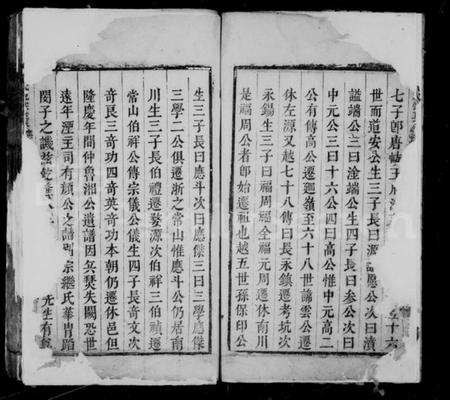 七子即唐
世而道安公生三子長曰
謚端公三曰淦端公生四子長曰參公次曰
中元公三曰十六公四曰高公惟中元高二
公有傳高公遷迴嶺至六十八世諱雲公遷
休左源又越七十八傳曰長永鎮遷考坑次
永錫生三子曰福周福全福元周遷休南川
是福周公者即始遷祖也越五世孫保印公
生三子長曰應斗次曰應傑三曰三學應傑
三學二公俱遷浙之常山惟應斗公仍居南
川生三子長伯禮遷婺源次伯祥三伯禎遷
常山伯祥公傳宗儀公儀生四子長奇文次
奇良三奇功四奇英奇功本朝仍遷休邑但
隆慶年間仲魯湘公遺譜因兵焚失闕恐世
遠年湮王司有顏公之譜
宗繼氏華冑蹈
閔子之譏
先生有
愿公次曰濆